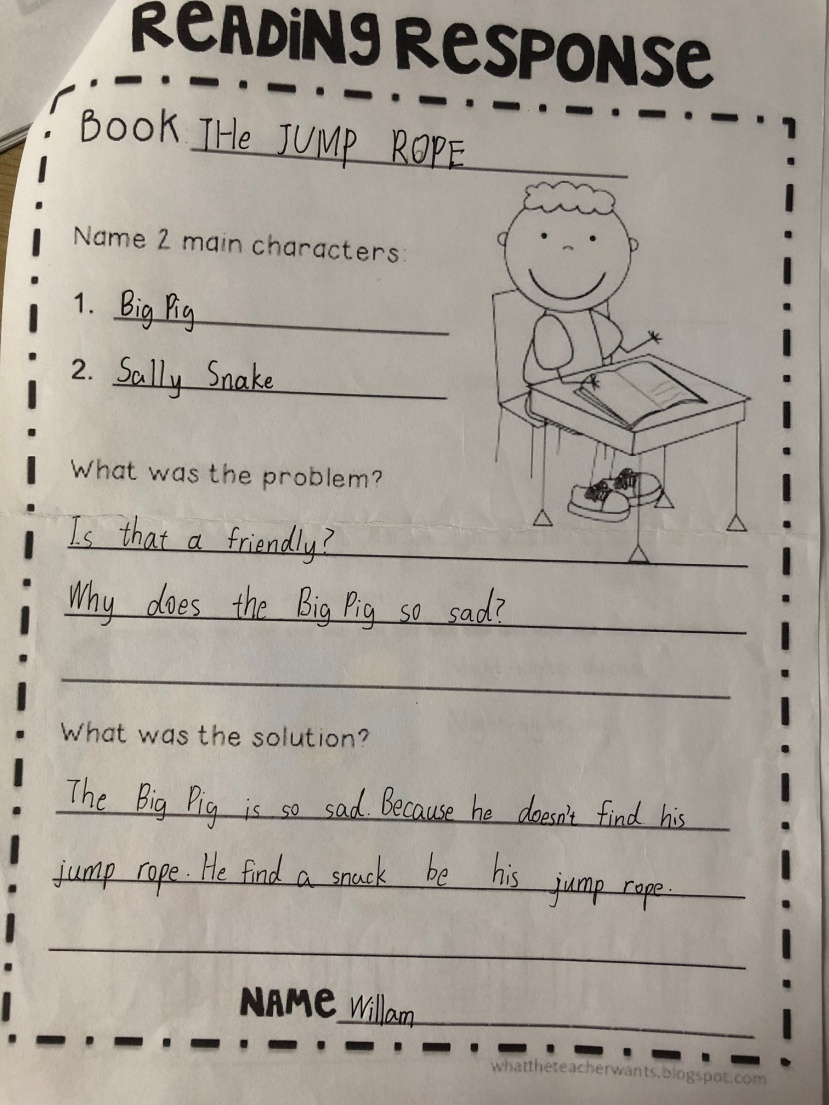 READING RESPONSE
BOOK THe JUMP ROPE
Name 2 main characters:
1. Big Pig
2. Sally Snake
What was the problem?
Is that a friendly?
Why does the Big Pig so sad?
What was the solution?
The Big Pig is so sad. Because he doesn't find his
jump rope. He find a snack be his jump rope.
NAMe Willam
whattheteacherwants.blogspot.com